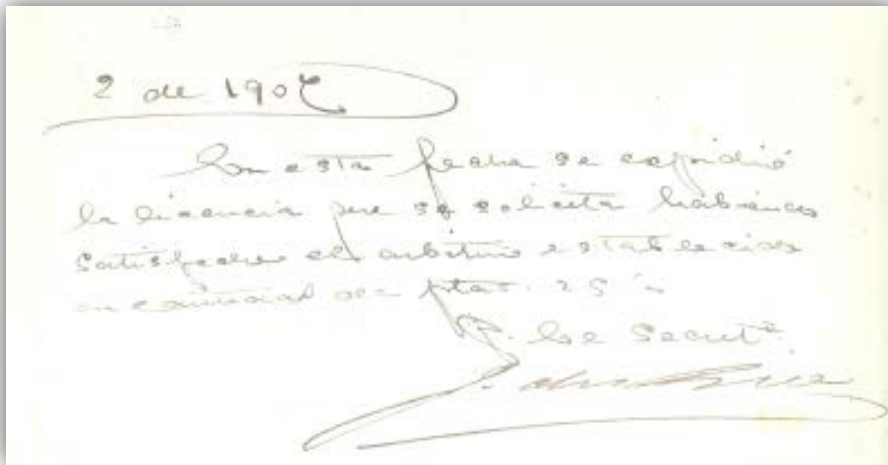 2 de 1907
Con esta fecha se expidió
la licencia que se solicita habiendo
satisfecho el arbitrio establecido
en cantidad de ptas. 25
P. El Secret.º